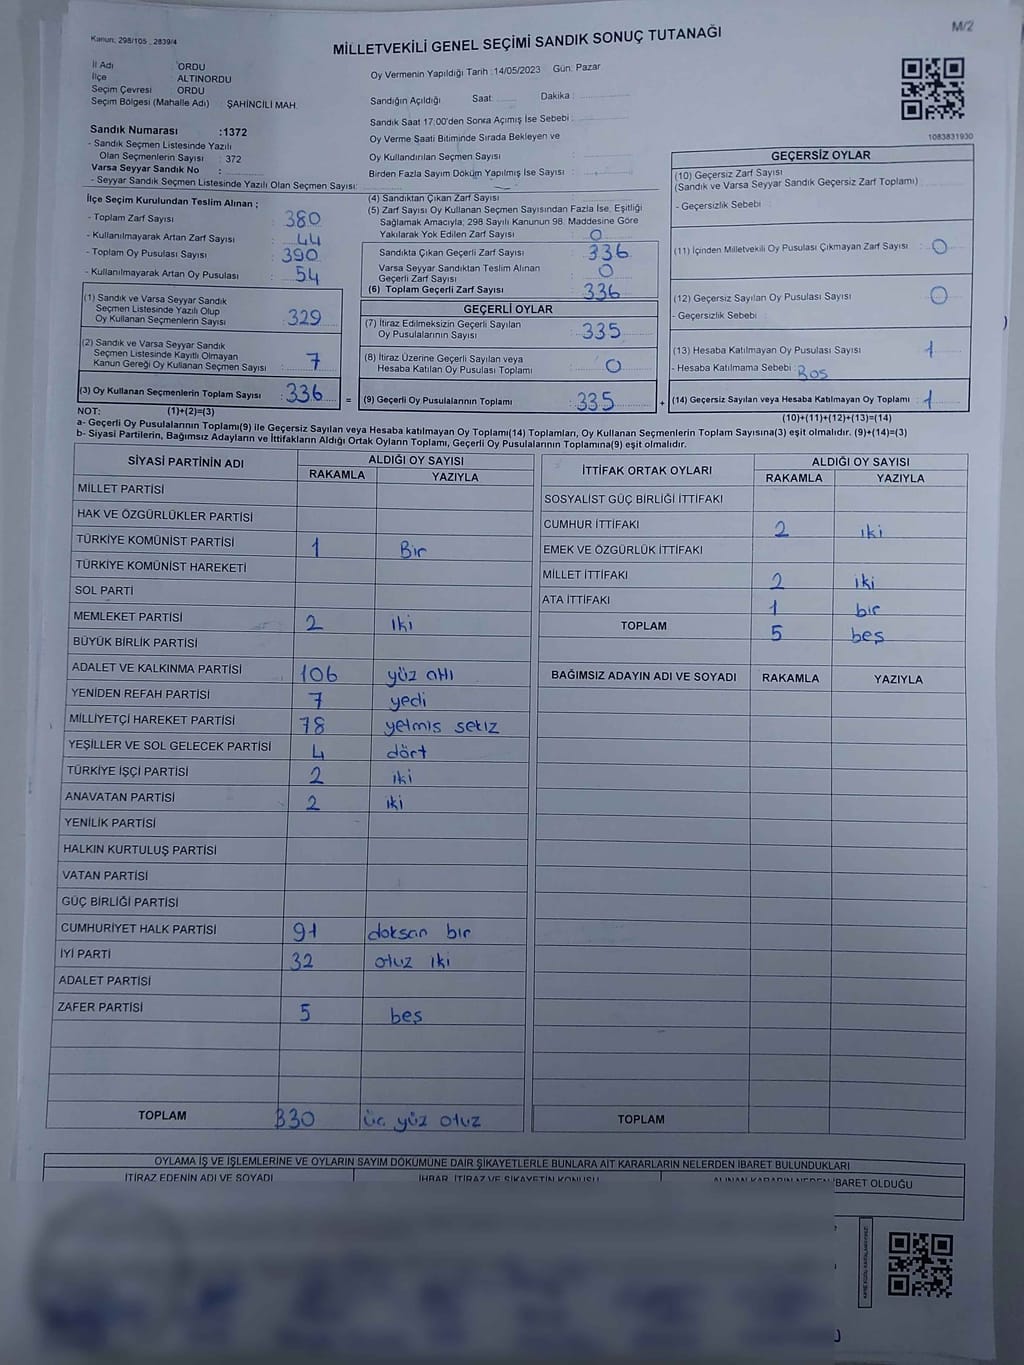 M/2
Kanun: 298/105 , 2839/4
MİLLETVEKİLİ GENEL SEÇİMİ SANDIK SONUÇ TUTANAĞI
İl Adı : ORDU
İlçe : ALTINORDU
Seçim Çevresi : ORDU
Seçim Bölgesi (Mahalle Adı) : ŞAHİNCİLİ MAH.
Sandık Numarası :1372
- Sandık Seçmen Listesinde Yazılı
Olan Seçmenlerin Sayısı : 372
Varsa Seyyar Sandık No :
- Seyyar Sandık Seçmen Listesinde Yazılı Olan Seçmen Sayısı:
Oy Vermenin Yapıldığı Tarih :14/05/2023 Gün: Pazar
Sandığın Açıldığı Saat: Dakika :
Sandık Saat 17:00'den Sonra Açımış İse Sebebi :
Oy Verme Saati Bitiminde Sırada Bekleyen ve
Oy Kullandırılan Seçmen Sayısı :
Birden Fazla Sayım Döküm Yapılmış İse Sayısı :
1083831930
İlçe Seçim Kurulundan Teslim Alınan ;
- Toplam Zarf Sayısı : 380
- Kullanılmayarak Artan Zarf Sayısı : 44
- Toplam Oy Pusulası Sayısı : 390
- Kullanılmayarak Artan Oy Pusulası : 54
(1) Sandık ve Varsa Seyyar Sandık
Seçmen Listesinde Yazılı Olup
Oy Kullanan Seçmenlerin Sayısı : 329
(2) Sandık ve Varsa Seyyar Sandık
Seçmen Listesinde Kayıtlı Olmayan
Kanun Gereği Oy Kullanan Seçmen Sayısı : 7
(3) Oy Kullanan Seçmenlerin Toplam Sayısı : 336 =
(4) Sandıktan Çıkan Zarf Sayısı :
(5) Zarf Sayısı Oy Kullanan Seçmen Sayısından Fazla İse, Eşitliği
Sağlamak Amacıyla; 298 Sayılı Kanunun 98. Maddesine Göre
Yakılarak Yok Edilen Zarf Sayısı : 0
Sandıkta Çıkan Geçerli Zarf Sayısı : 336
Varsa Seyyar Sandıktan Teslim Alınan
Geçerli Zarf Sayısı : 0
(6) Toplam Geçerli Zarf Sayısı : 336
GEÇERLİ OYLAR
(7) İtiraz Edilmeksizin Geçerli Sayılan
Oy Pusulalarının Sayısı : 335
(8) İtiraz Üzerine Geçerli Sayılan veya
Hesaba Katılan Oy Pusulası Toplamı : 0
(9) Geçerli Oy Pusulalarının Toplamı : 335 +
GEÇERSİZ OYLAR
(10) Geçersiz Zarf Sayısı
(Sandık ve Varsa Seyyar Sandık Geçersiz Zarf Toplamı) :
- Geçersizlik Sebebi :
(11) İçinden Milletvekili Oy Pusulası Çıkmayan Zarf Sayısı : 0
(12) Geçersiz Sayılan Oy Pusulası Sayısı : 0
- Geçersizlik Sebebi :
(13) Hesaba Katılmayan Oy Pusulası Sayısı : 1
- Hesaba Katılmama Sebebi : Boş
(14) Geçersiz Sayılan veya Hesaba Katılmayan Oy Toplamı : 1
NOT: (1)+(2)=(3) (10)+(11)+(12)+(13)=(14)
a- Geçerli Oy Pusulalarının Toplamı(9) ile Geçersiz Sayılan veya Hesaba katılmayan Oy Toplamı(14) Toplamları, Oy Kullanan Seçmenlerin Toplam Sayısına(3) eşit olmalıdır. (9)+(14)=(3)
b- Siyasi Partilerin, Bağımsız Adayların ve İttifakların Aldığı Ortak Oyların Toplamı, Geçerli Oy Pusulalarının Toplamına(9) eşit olmalıdır.
SİYASİ PARTİNİN ADI ALDIĞI OY SAYISI
RAKAMLA YAZIYLA
MİLLET PARTİSİ
HAK VE ÖZGÜRLÜKLER PARTİSİ
TÜRKİYE KOMÜNİST PARTİSİ 1 Bir
TÜRKİYE KOMÜNİST HAREKETİ
SOL PARTİ
MEMLEKET PARTİSİ 2 iki
BÜYÜK BİRLİK PARTİSİ
ADALET VE KALKINMA PARTİSİ 106 yüz altı
YENİDEN REFAH PARTİSİ 7 yedi
MİLLİYETÇİ HAREKET PARTİSİ 78 yetmiş sekiz
YEŞİLLER VE SOL GELECEK PARTİSİ 4 dört
TÜRKİYE İŞÇİ PARTİSİ 2 iki
ANAVATAN PARTİSİ 2 iki
YENİLİK PARTİSİ
HALKIN KURTULUŞ PARTİSİ
VATAN PARTİSİ
GÜÇ BİRLİĞİ PARTİSİ
CUMHURİYET HALK PARTİSİ 91 doksan bir
İYİ PARTİ 32 otuz iki
ADALET PARTİSİ
ZAFER PARTİSİ 5 beş
TOPLAM 330 üç yüz otuz
İTTİFAK ORTAK OYLARI ALDIĞI OY SAYISI
RAKAMLA YAZIYLA
SOSYALİST GÜÇ BİRLİĞİ İTTİFAKI
CUMHUR İTTİFAKI 2 iki
EMEK VE ÖZGÜRLÜK İTTİFAKI
MİLLET İTTİFAKI 2 iki
ATA İTTİFAKI 1 bir
TOPLAM 5 beş
BAĞIMSIZ ADAYIN ADI VE SOYADI RAKAMLA YAZIYLA
TOPLAM
OYLAMA İŞ VE İŞLEMLERİNE VE OYLARIN SAYIM DÖKÜMÜNE DAİR ŞİKAYETLERLE BUNLARA AİT KARARLARIN NELERDEN İBARET BULUNDUKLARI
İTİRAZ EDENİN ADI VE SOYADI İHBAR, İTİRAZ VE ŞİKAYETİN KONUSU ALINAN KARARIN NEDEN İBARET OLDUĞU